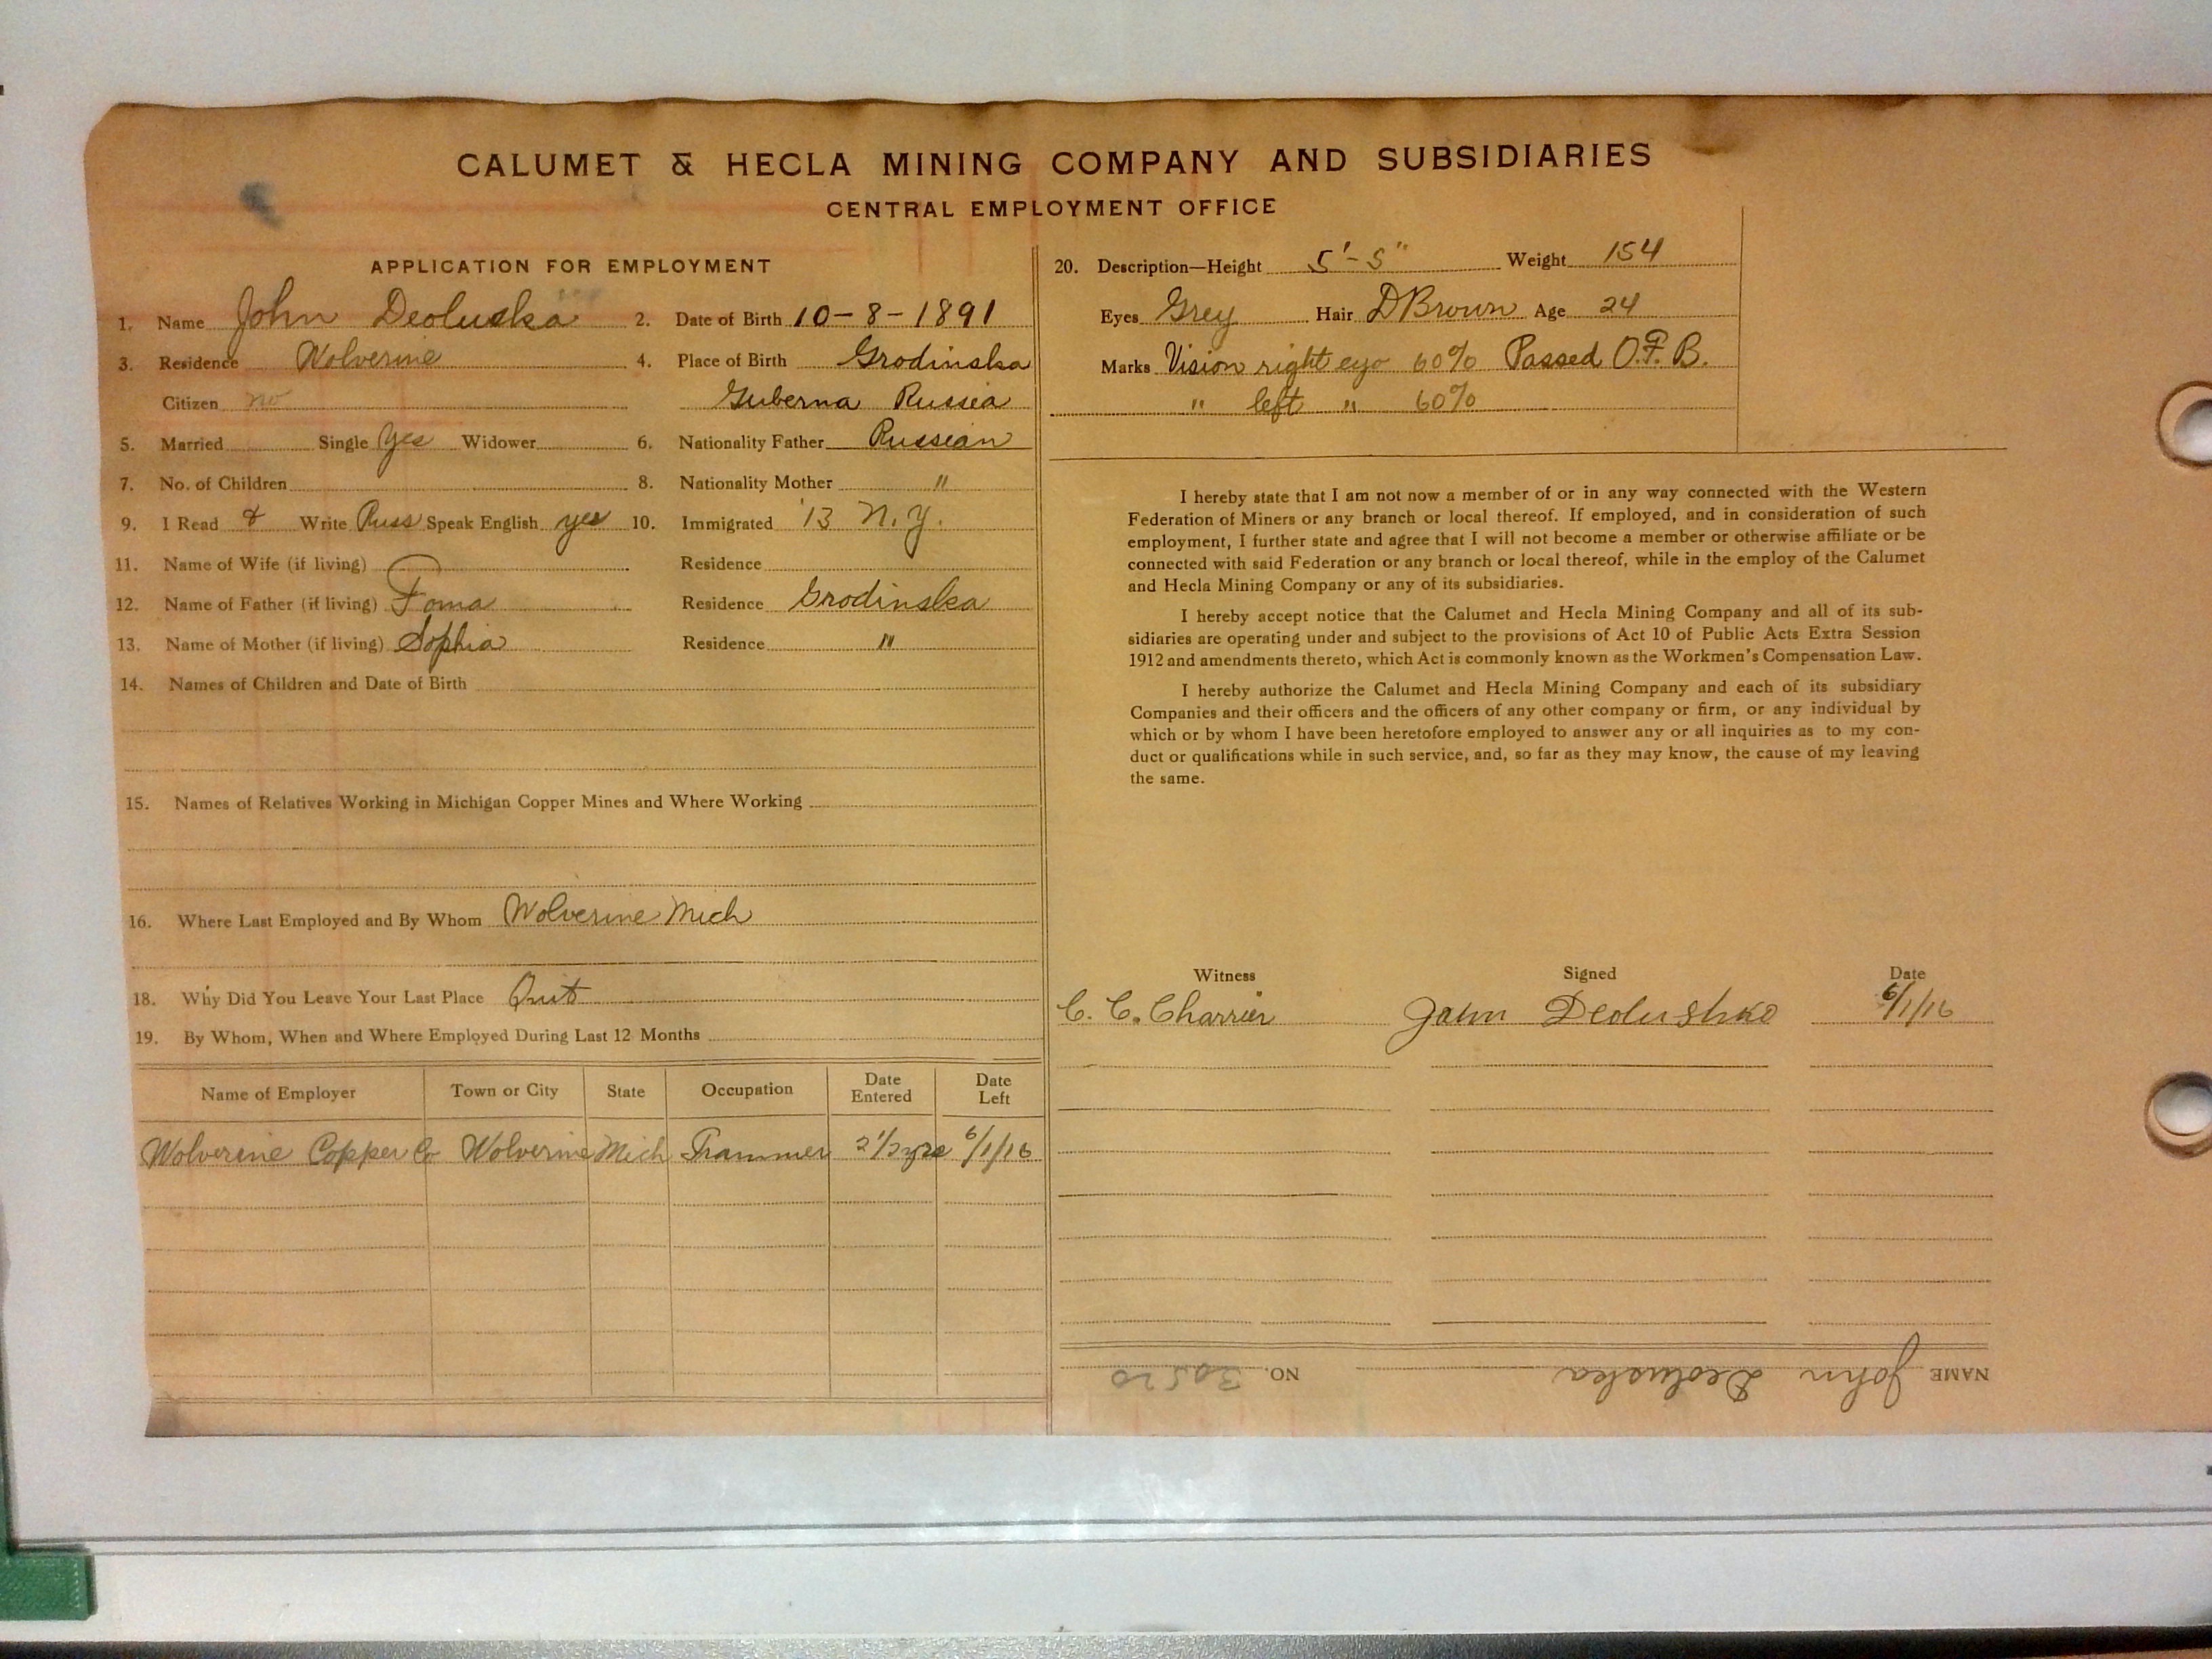 CALUMET & HECLA MINING COMPANY AND SUBSIDIARIES
CENTRAL EMPLOYMENT OFFICE
APPLICATION FOR EMPLOYMENT
1. Name John Deoluska 2. Date of Birth 10-8-1891
3. Residence Wolverine 4. Place of Birth Grodinska
Citizen no Guberna Russia
5. Married Single yes Widower 6. Nationality Father Russian
7. No. of Children 8. Nationality Mother "
9. I Read & Write Russ Speak English yes 10. Immigrated '13 N.Y.
11. Name of Wife (if living) Residence
12. Name of Father (if living) Foma Residence Grodinska
13. Name of Mother (if living) Sophia Residence "
14. Names of Children and Date of Birth
15. Names of Relatives Working in Michigan Copper Mines and Where Working
16. Where Last Employed and By Whom Wolverine Mich
18. Why Did You Leave Your Last Place Quit
19. By Whom, When and Where Employed During Last 12 Months
Name of Employer Town or City State Occupation Date Entered Date Left
Wolverine Copper Co Wolverine Mich Trammer 2 1/2 yrs 6/1/16
20. Description—Height 5'-5" Weight 154
Eyes Grey Hair D Brown Age 24
Marks Vision right eye 60% Passed O.F.B.
" left " 60%
I hereby state that I am not now a member of or in any way connected with the Western
Federation of Miners or any branch or local thereof. If employed, and in consideration of such
employment, I further state and agree that I will not become a member or otherwise affiliate or be
connected with said Federation or any branch or local thereof, while in the employ of the Calumet
and Hecla Mining Company or any of its subsidiaries.
I hereby accept notice that the Calumet and Hecla Mining Company and all of its sub-
sidiaries are operating under and subject to the provisions of Act 10 of Public Acts Extra Session
1912 and amendments thereto, which Act is commonly known as the Workmen's Compensation Law.
I hereby authorize the Calumet and Hecla Mining Company and each of its subsidiary
Companies and their officers and the officers of any other company or firm, or any individual by
which or by whom I have been heretofore employed to answer any or all inquiries as to my con-
duct or qualifications while in such service, and, so far as they may know, the cause of my leaving
the same.
Witness Signed Date
C. C. Charrier John Deolushko 6/1/16
NAME John Deoluska NO. 30520